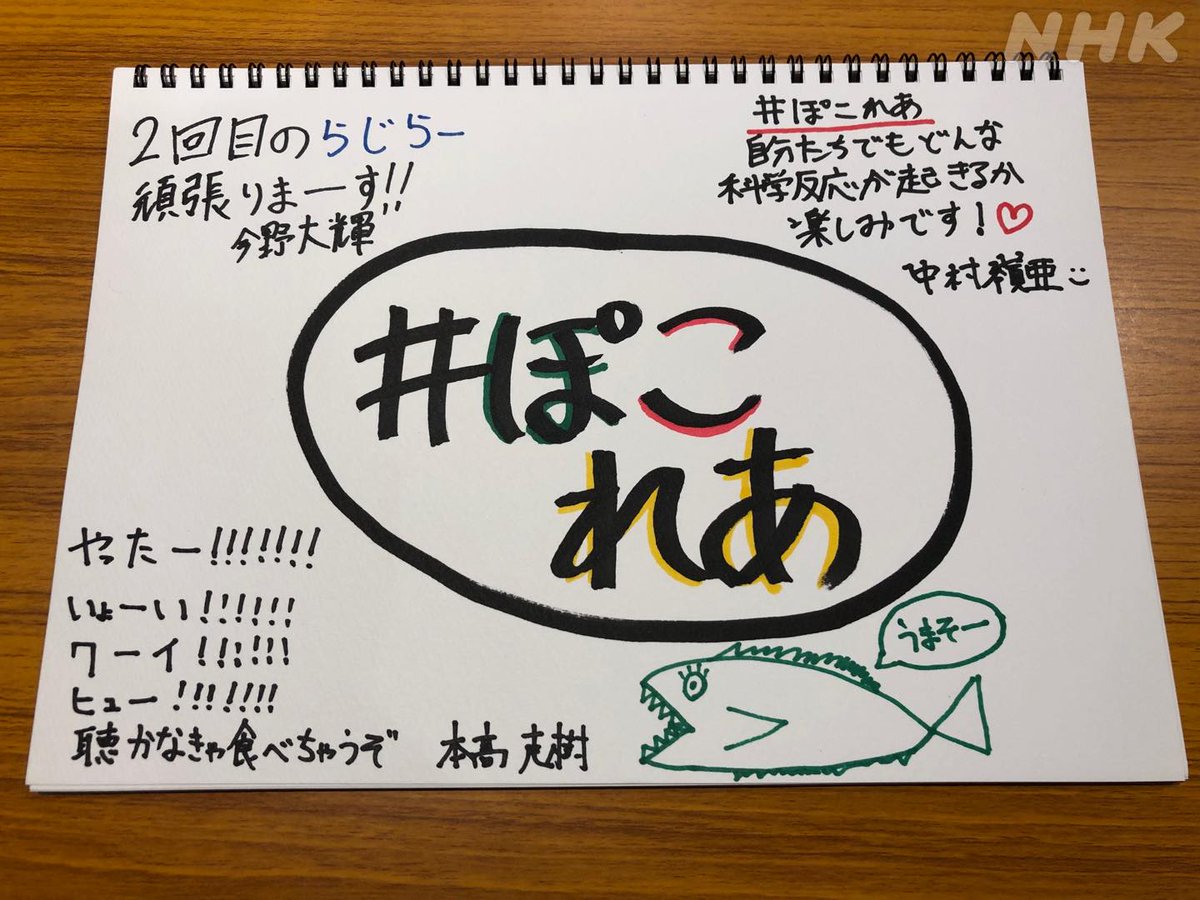 NHK
2回目のらじらー
頑張りまーす!!
今野大輝
#ぽこれあ
自分たちでもどんな
科学反応が起きるか
楽しみです!♡
中村嶺亜
#ぽこ
れあ
やったー!!!!!!!
いょーい!!!!!!
ワーイ!!!!!!
ヒュー!!!!!!!
聴かなきゃ食べちゃうぞ 本髙克樹
うまそー